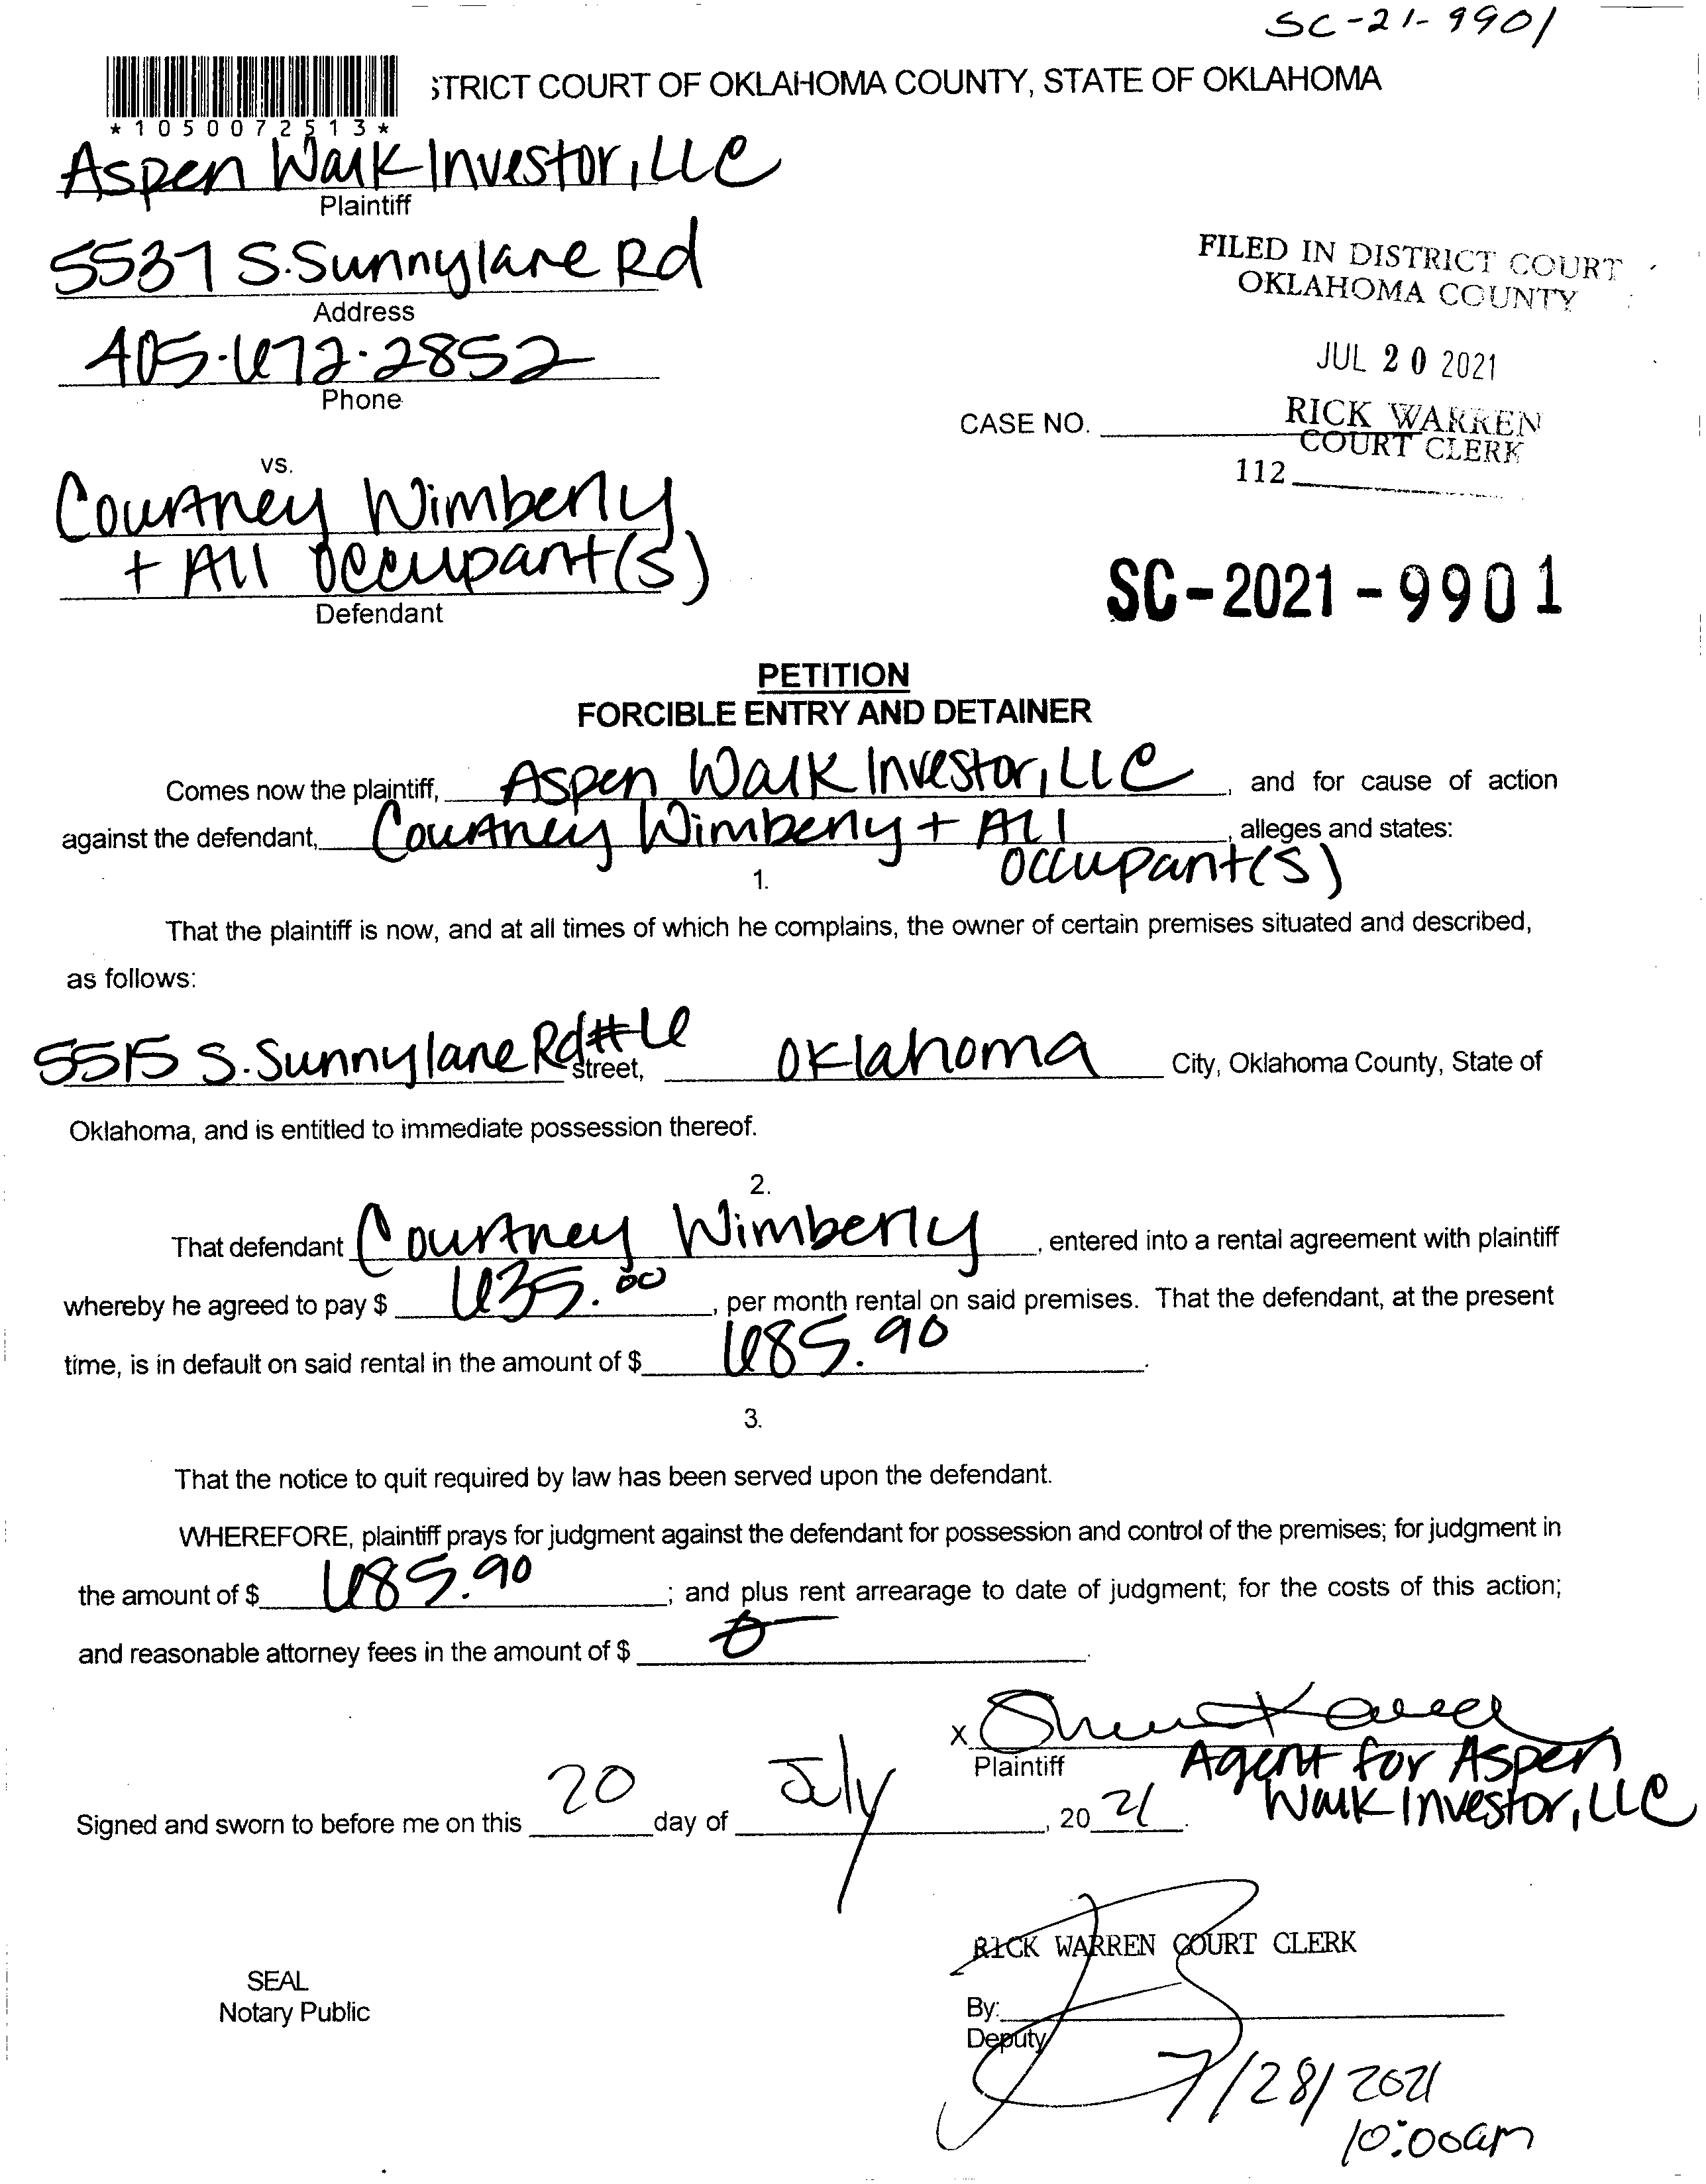 SC-21-9901
STRICT COURT OF OKLAHOMA COUNTY, STATE OF OKLAHOMA
*1050072513*
Aspen Walk Investor, LLC
Plaintiff
5537 S. Sunnylane Rd
Address
405-672-2852
Phone
FILED IN DISTRICT COURT
OKLAHOMA COUNTY
JUL 20 2021
RICK WARREN
COURT CLERK
112
CASE NO.
vs.
Courtney Wimberly
+ All Occupant(s)
Defendant
SC-2021-9901
PETITION
FORCIBLE ENTRY AND DETAINER
Comes now the plaintiff, Aspen Walk Investor, LLC, and for cause of action
against the defendant, Courtney Wimberly + All Occupant(s), alleges and states:
1.
That the plaintiff is now, and at all times of which he complains, the owner of certain premises situated and described,
as follows:
5515 S. Sunnylane Rd #6 Street, Oklahoma City, Oklahoma County, State of
Oklahoma, and is entitled to immediate possession thereof.
2.
That defendant Courtney Wimberly, entered into a rental agreement with plaintiff
whereby he agreed to pay $ 635.00, per month rental on said premises. That the defendant, at the present
time, is in default on said rental in the amount of $ 685.90.
3.
That the notice to quit required by law has been served upon the defendant.
WHEREFORE, plaintiff prays for judgment against the defendant for possession and control of the premises; for judgment in
the amount of $ 685.90; and plus rent arrearage to date of judgment; for the costs of this action;
and reasonable attorney fees in the amount of $ 0.
X
Plaintiff Agent for Aspen
Walk Investor, LLC
Signed and sworn to before me on this 20 day of July, 2021.
RICK WARREN COURT CLERK
SEAL
Notary Public
By:
Deputy
7/28/2021
10:00am